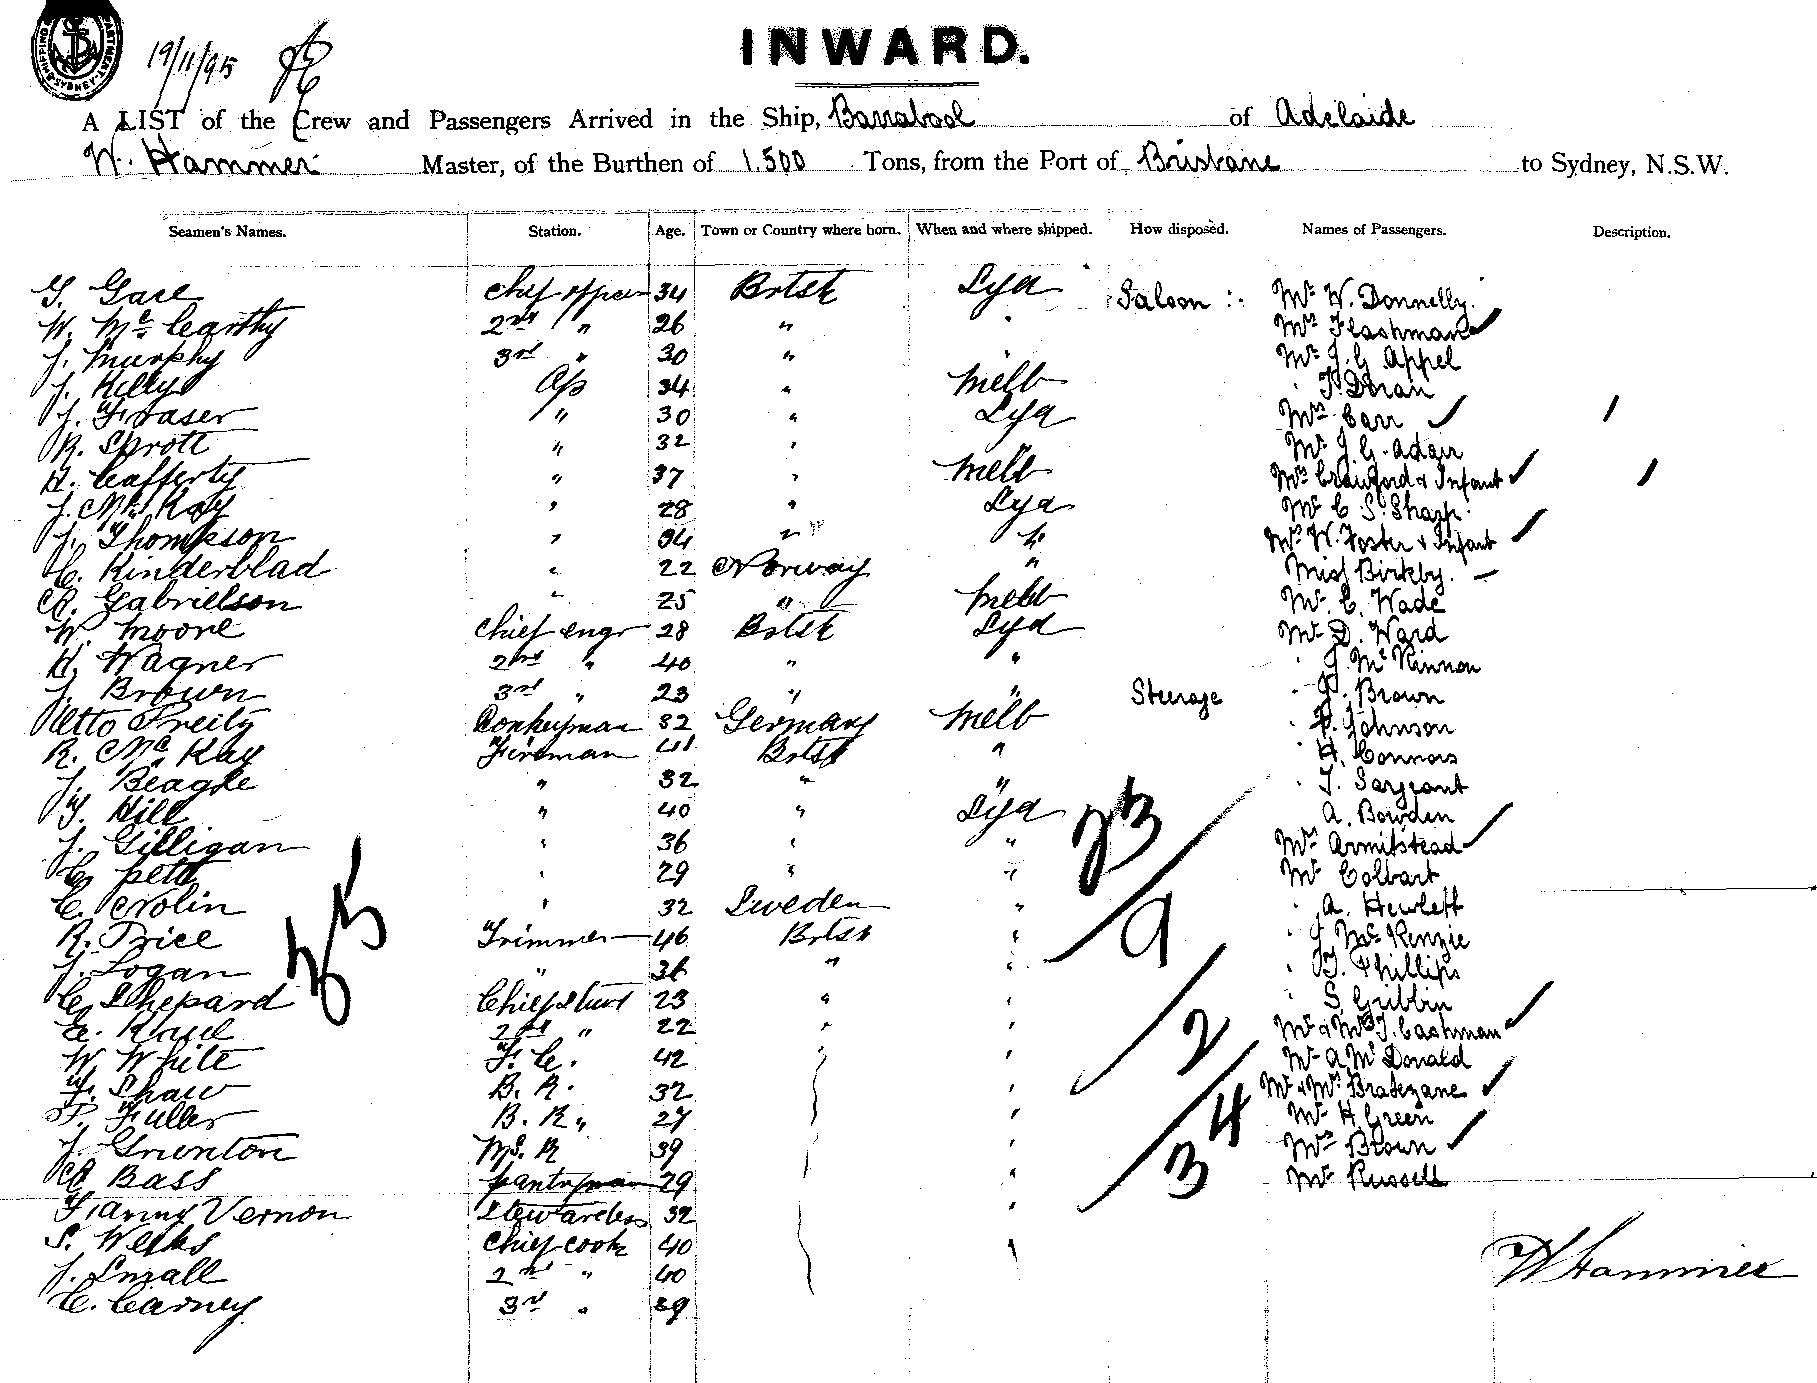 19/11/95
INWARD.
A LIST of the Crew and Passengers Arrived in the Ship, Barrabool of Adelaide
W. Hammer Master, of the Burthen of 1.500 Tons, from the Port of Brisbane to Sydney, N.S.W.
Seamen's Names. Station. Age. Town or Country where born. When and where shipped. How disposed. Names of Passengers. Description.
Chief officer 34 Brtsh Syd Saloon :. Mr W. Donnelly.
W. McCarthy 2nd " 26 " " Mrs Flashman
J. Murphy 3rd " 30 " " Mr J. G. Appel
J. Kelly 34 " Melb " T. Doran
J. Fraser " 30 " Syd Mrs Carr
R. Sprott " 32 " " Mr J. G. Adair
H. Cafferty " 37 " Melb Mrs Crawford & Infant
J. McKay " 28 " Syd Mr C. S. Sharp
J. Thompson " 34 " " Mrs W. Foster & Infant
C. Kinderblad " 22 Norway " Miss Birkby.
A. Gabrielson " 25 " Melb Mr C. Wade
W. Moore Chief engr 28 Brtsh Syd Mr D. Ward
H. Wagner 2nd " 40 " " " J. McKinnon
J. Brown 3rd " 23 " " Steerage " J. Brown
Otto Donkeyman 32 Germany Melb " Johnson
R. McKay Fireman 41 Brtsh " " H. Connors
J. Beagle " 32 " " " T. Sargeant
Hill " 40 " Syd A. Bowden
J. Gilligan " 36 " " Mrs Armitstead
29 " " Mr Colbart
C. Nolin " 32 Sweden " " A. Hewlett
R. Price Trimmer 46 Brtsh " " J. McKenzie
J. Logan " 36 " " " T. Phillips
C. Shepard Chief Stwd 23 " " " S. Gribbin
2nd " 22 " " Mr & Mrs J. Cashman
W. White F. C. 42 " " Mr A McDonald
Shaw B. R. 32 " Mr & Mrs
P. Fuller B. R. 27 " Mr H. Green
J. Grunton M.S. R 39 " Mrs Brown
A. Bass Pantryman 29 " Mr Russell
Fanny Vernon Stewardess 32 "
S. Weeks Chief cook 40 "
J. Small 2nd " 40
C. Carney 3rd " 39
35
23
9
2
4
3
W Hammer